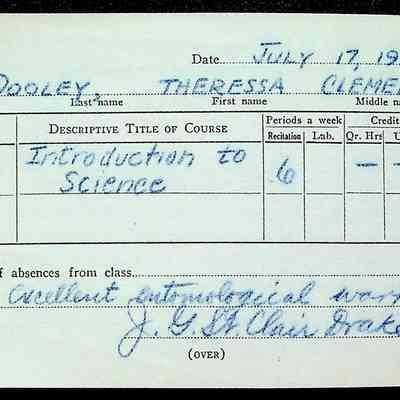 Date JULY 17, 19
DOOLEY, THERESSA CLEME
Last name First name Middle n
Periods a week Credit
DESCRIPTIVE TITLE OF COURSE Recitation Lab. Qr. Hrs U
Introduction to 6 — –
Science
f absences from class
excellent entomological work
J. G. St. Clair Drake
(OVER)